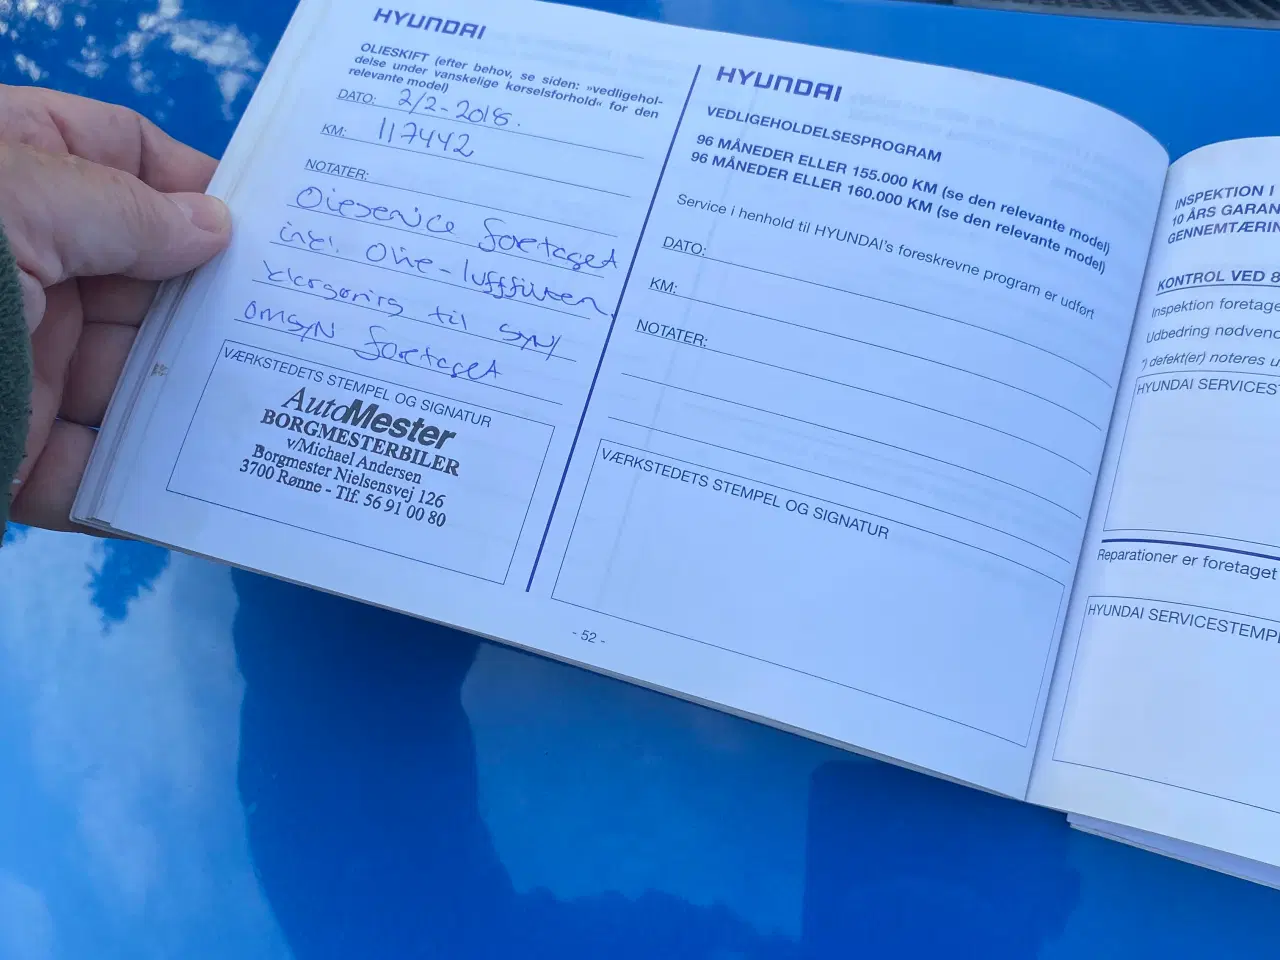 HYUNDAI
OLIESKIFT (efter behov, se siden: »vedligehol-
delse under vanskelige kørselsforhold« for den
relevante model)
DATO: 2/2-2018.
KM: 117442
NOTATER:
Olieservice foretaget
inkl. Olie-luftfilter.
klargøring til syn/
omsyn foretaget
VÆRKSTEDETS STEMPEL OG SIGNATUR
AutoMester
BORGMESTERBILER
v/Michael Andersen
Borgmester Nielsensvej 126
3700 Rønne - Tlf. 56 91 00 80
HYUNDAI
VEDLIGEHOLDELSESPROGRAM
96 MÅNEDER ELLER 155.000 KM (se den relevante model)
96 MÅNEDER ELLER 160.000 KM (se den relevante model)
Service i henhold til HYUNDAI's foreskrevne program er udført
DATO:
KM:
NOTATER:
VÆRKSTEDETS STEMPEL OG SIGNATUR
- 52 -
INSPEKTION I
10 ÅRS GARAN
GENNEMTÆRIN
KONTROL VED 8
Inspektion foretage
Udbedring nødvend
*) defekt(er) noteres u
HYUNDAI SERVICEST
Reparationer er foretaget
HYUNDAI SERVICESTEMP